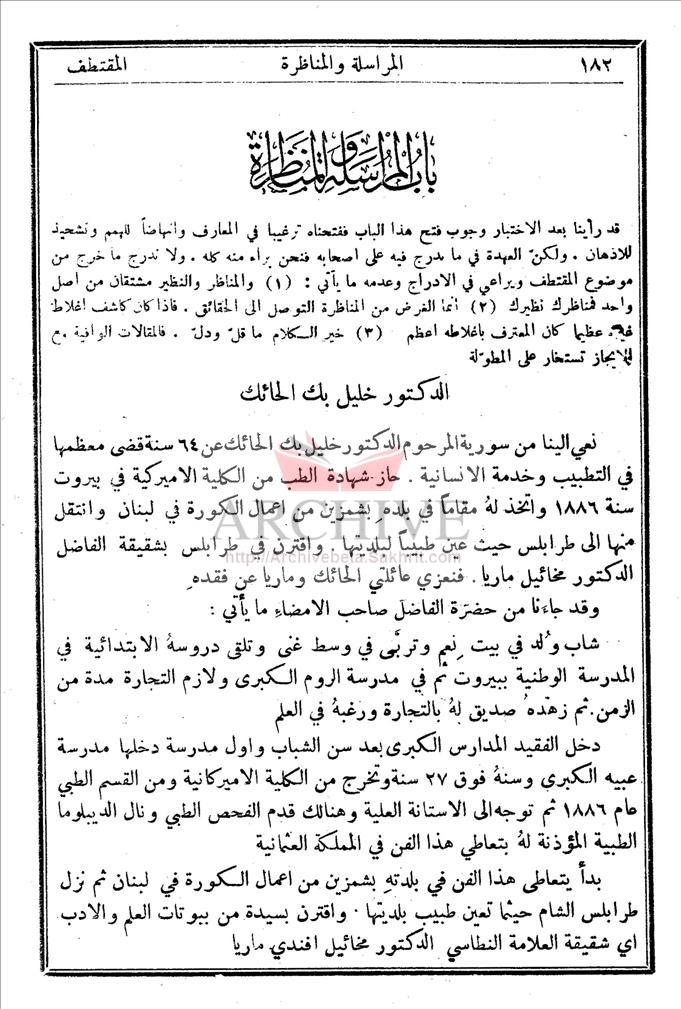 ١٨٢ المراسلة والمناظرة المقتطف
باب المراسلة والمناظرة
قد رأينا بعد الاختبار وجوب فتح هذا الباب ففتحناه ترغيبا في المعارف وانهاضاً للهمم وتشحيذ
للاذهان . ولكنّ العهدة في ما يدرج فيه على اصحابه فنحن براء منه كله . ولا ندرج ما خرج من
موضوع المقتطف ويراعي في الادراج وعدمه ما يأتي : (١) والمناظر والنظير مشتقان من اصل
واحد فمناظرك نظيرك (٢) انما الغرض من المناظرة التوصل الى الحقائق . فاذا كان كاشف اغلاط
غيره عظيما كان المعترف باغلاطه اعظم (٣) خير الكلام ما قلّ ودلّ . فالمقالات الوافية مع
الايجاز تستخار على المطوّلة
الدكتور خليل بك الحائك
نعي الينا من سورية المرحوم الدكتور خليل بك الحائك عن ٦٤ سنة قضى معظمها
في التطبيب وخدمة الانسانية . حاز شهادة الطب من الكلية الاميركية في بيروت
سنة ١٨٨٦ واتخذ لهُ مقاماً في بلده بشمزين من اعمال الكورة في لبنان وانتقل
منها الى طرابلس حيث عين طبيباً لبلديتها . واقترن في طرابلس بشقيقة الفاضل
الدكتور مخائيل ماريا . فنعزي عائلتي الحائك وماريا عن فقده
وقد جاءنا من حضرة الفاضل صاحب الامضاء ما يأتي :
شاب وُلد في بيت نعم وتربَّى في وسط غنى وتلقى دروسهُ الابتدائية في
المدرسة الوطنية ببيروت ثم في مدرسة الروم الكبرى ولازم التجارة مدة من
الزمن. ثم زهّده صديق لهُ بالتجارة ورغبهُ في العلم
دخل الفقيد المدارس الكبرى بعد سن الشباب واول مدرسة دخلها مدرسة
عبيه الكبرى وسنهُ فوق ٢٧ سنة وتخرج من الكلية الاميركانية ومن القسم الطبي
عام ١٨٨٦ ثم توجه الى الاستانة العلية وهنالك قدم الفحص الطبي ونال الديبلوما
الطبية المؤذنة لهُ بتعاطي هذا الفن في المملكة العثمانية
بدأ يتعاطى هذا الفن في بلدتهِ بشمزين من اعمال الكورة في لبنان ثم نزل
طرابلس الشام حيثما تعين طبيب بلديتها . واقترن بسيدة من بيوتات العلم والادب
اي شقيقة العلامة النطاسي الدكتور مخائيل افندي ماريا
ARCHIVE
http://Archivebeta.Sakhrit.com